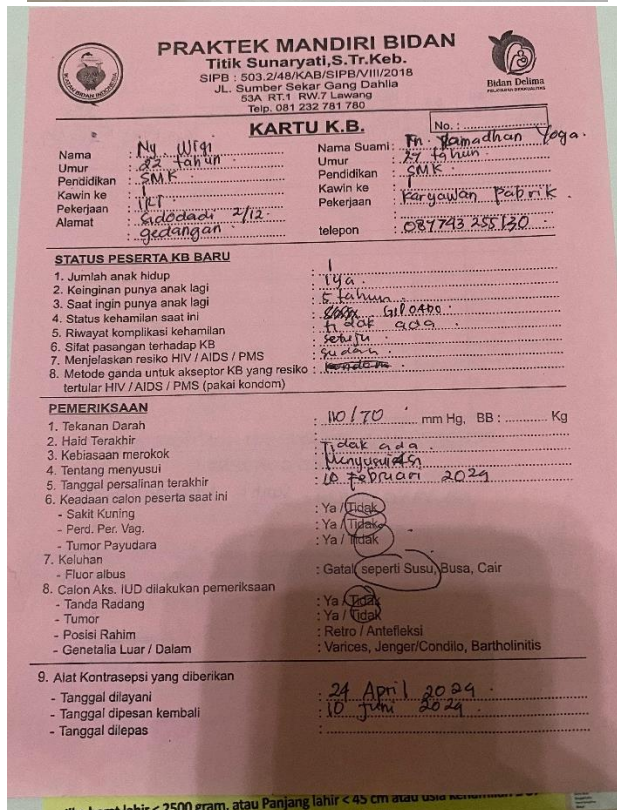 IKATAN BIDAN INDONESIA
PRAKTEK MANDIRI BIDAN
Titik Sunaryati,S.Tr.Keb.
SIPB : 503.2/48/KAB/SIPB/VIII/2018
JL. Sumber Sekar Gang Dahlia
53A RT.1 RW.7 Lawang
Telp. 081 232 781 780
Bidan Delima
PELAYANAN BERKUALITAS
KARTU K.B.
No. :
Nama : Ny. Wigi
Umur : 22 tahun
Pendidikan : SMK
Kawin ke : 1
Pekerjaan : IRT
Alamat : Sidodadi 2/12
gedangan
Nama Suami : Tn. Ramadhan Yoga.
Umur : 27 tahun
Pendidikan : SMK
Kawin ke : 1
Pekerjaan : Karyawan Pabrik
telepon : 087743 255130
STATUS PESERTA KB BARU
1. Jumlah anak hidup : 1
2. Keinginan punya anak lagi : iya
3. Saat ingin punya anak lagi : 5 tahun
4. Status kehamilan saat ini :
5. Riwayat komplikasi kehamilan : tidak ada
6. Sifat pasangan terhadap KB : setuju
7. Menjelaskan resiko HIV / AIDS / PMS : sudah
8. Metode ganda untuk akseptor KB yang resiko : kondom
tertular HIV / AIDS / PMS (pakai kondom)
PEMERIKSAAN
1. Tekanan Darah : 110/70 mm Hg, BB : Kg
2. Haid Terakhir :
3. Kebiasaan merokok : Tidak ada
4. Tentang menyusui : Menyusui
5. Tanggal persalinan terakhir : 10 Februari 2024
6. Keadaan calon peserta saat ini
- Sakit Kuning : Ya / Tidak
- Perd. Per. Vag. : Ya / Tidak
- Tumor Payudara : Ya / Tidak
7. Keluhan
- Fluor albus : Gatal, seperti Susu, Busa, Cair
8. Calon Aks. IUD dilakukan pemeriksaan
- Tanda Radang : Ya / Tidak
- Tumor : Ya / Tidak
- Posisi Rahim : Retro / Antefleksi
- Genetalia Luar / Dalam : Varices, Jenger/Condilo, Bartholinitis
9. Alat Kontrasepsi yang diberikan
- Tanggal dilayani : 24 April 2024
- Tanggal dipesan kembali : 10 Juni 2024
- Tanggal dilepas :
lahir < 2500 gram, atau Panjang lahir < 45 cm atau usia